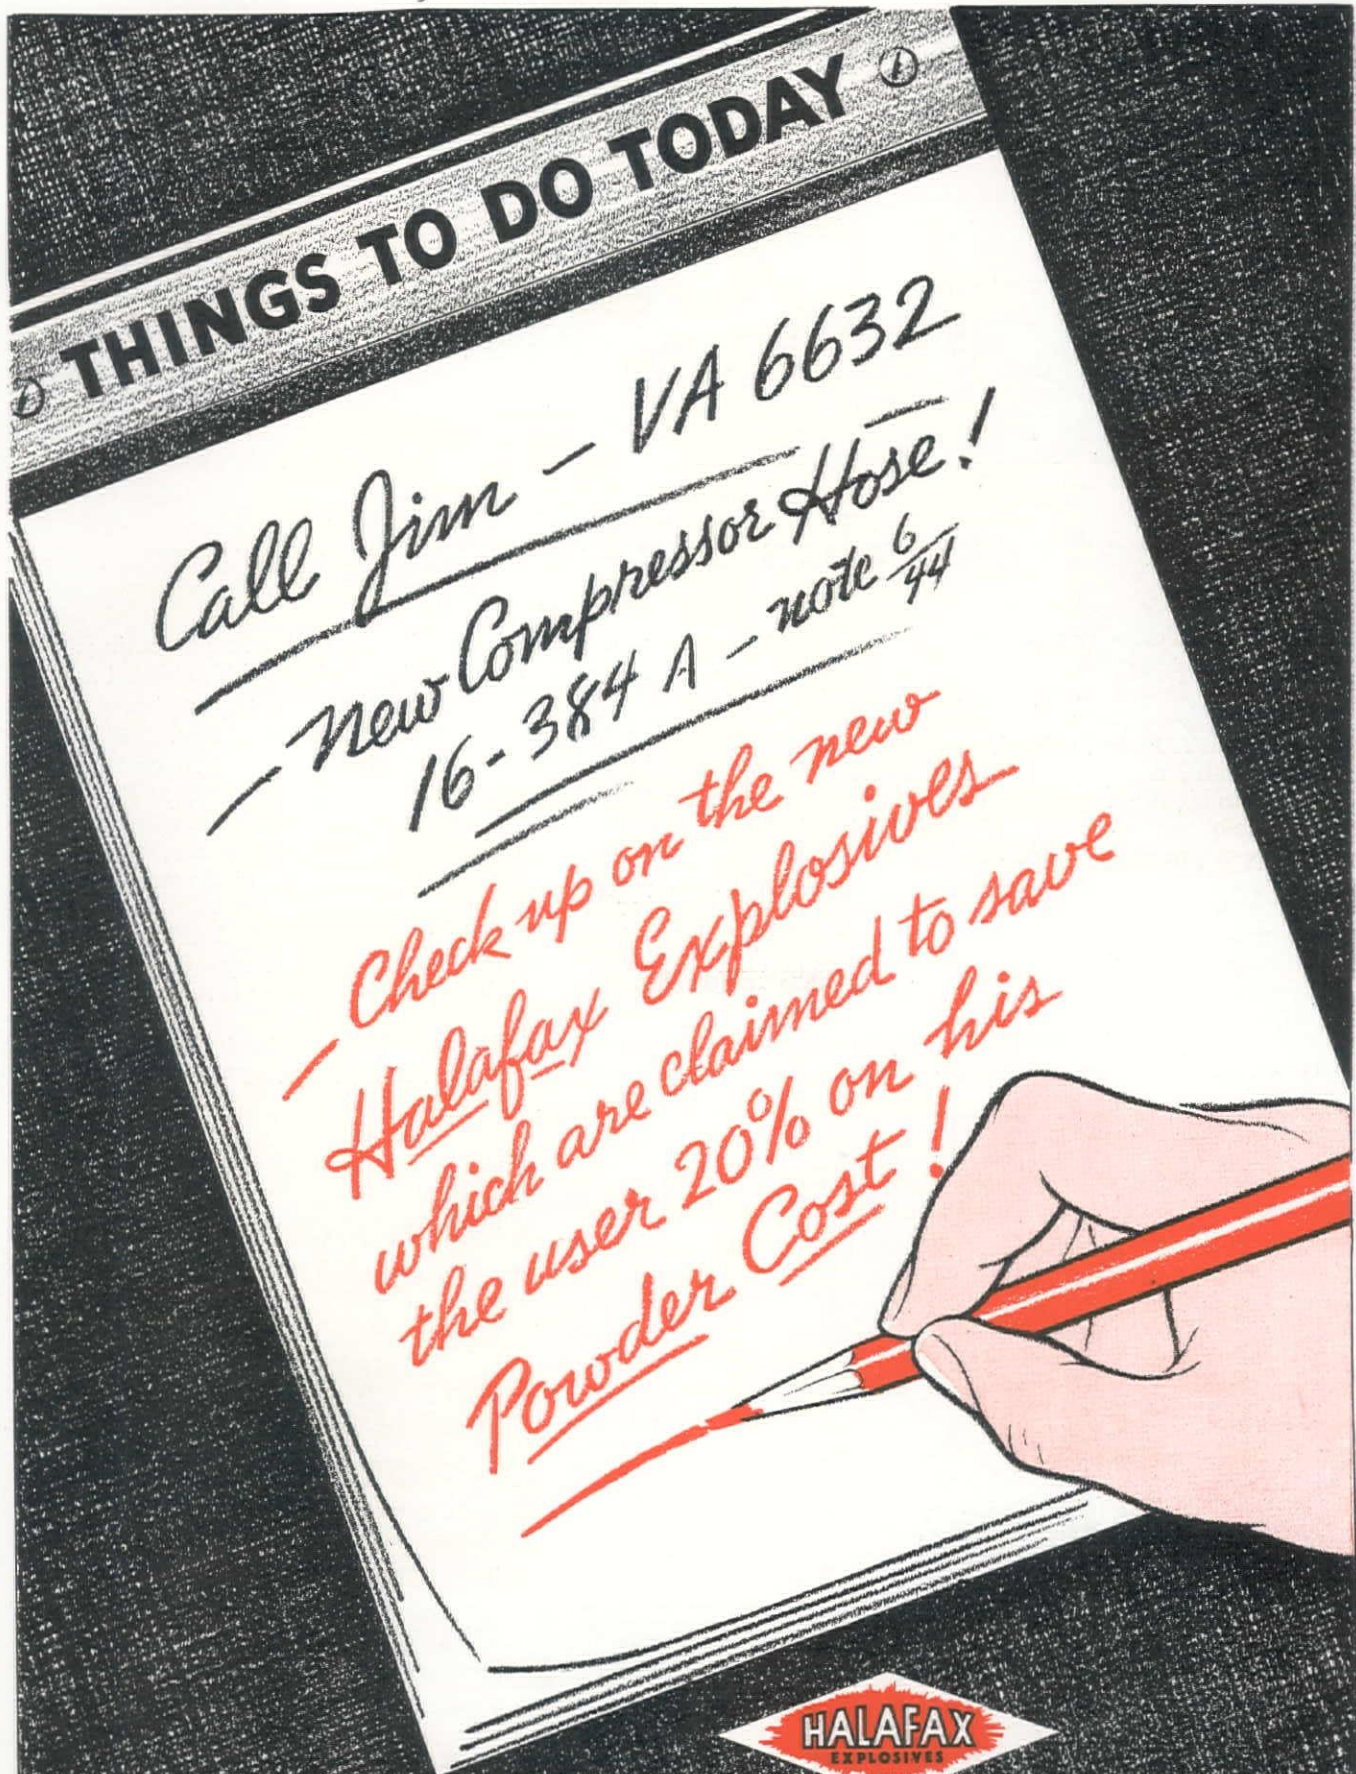 THINGS TO DO TODAY
Call Jim – VA 6632
– New Compressor Hose!
16-384 A – note 6/44
– Check up on the new
Halafax Explosives
which are claimed to save
the user 20% on his
Powder Cost!
HALAFAX
EXPLOSIVES